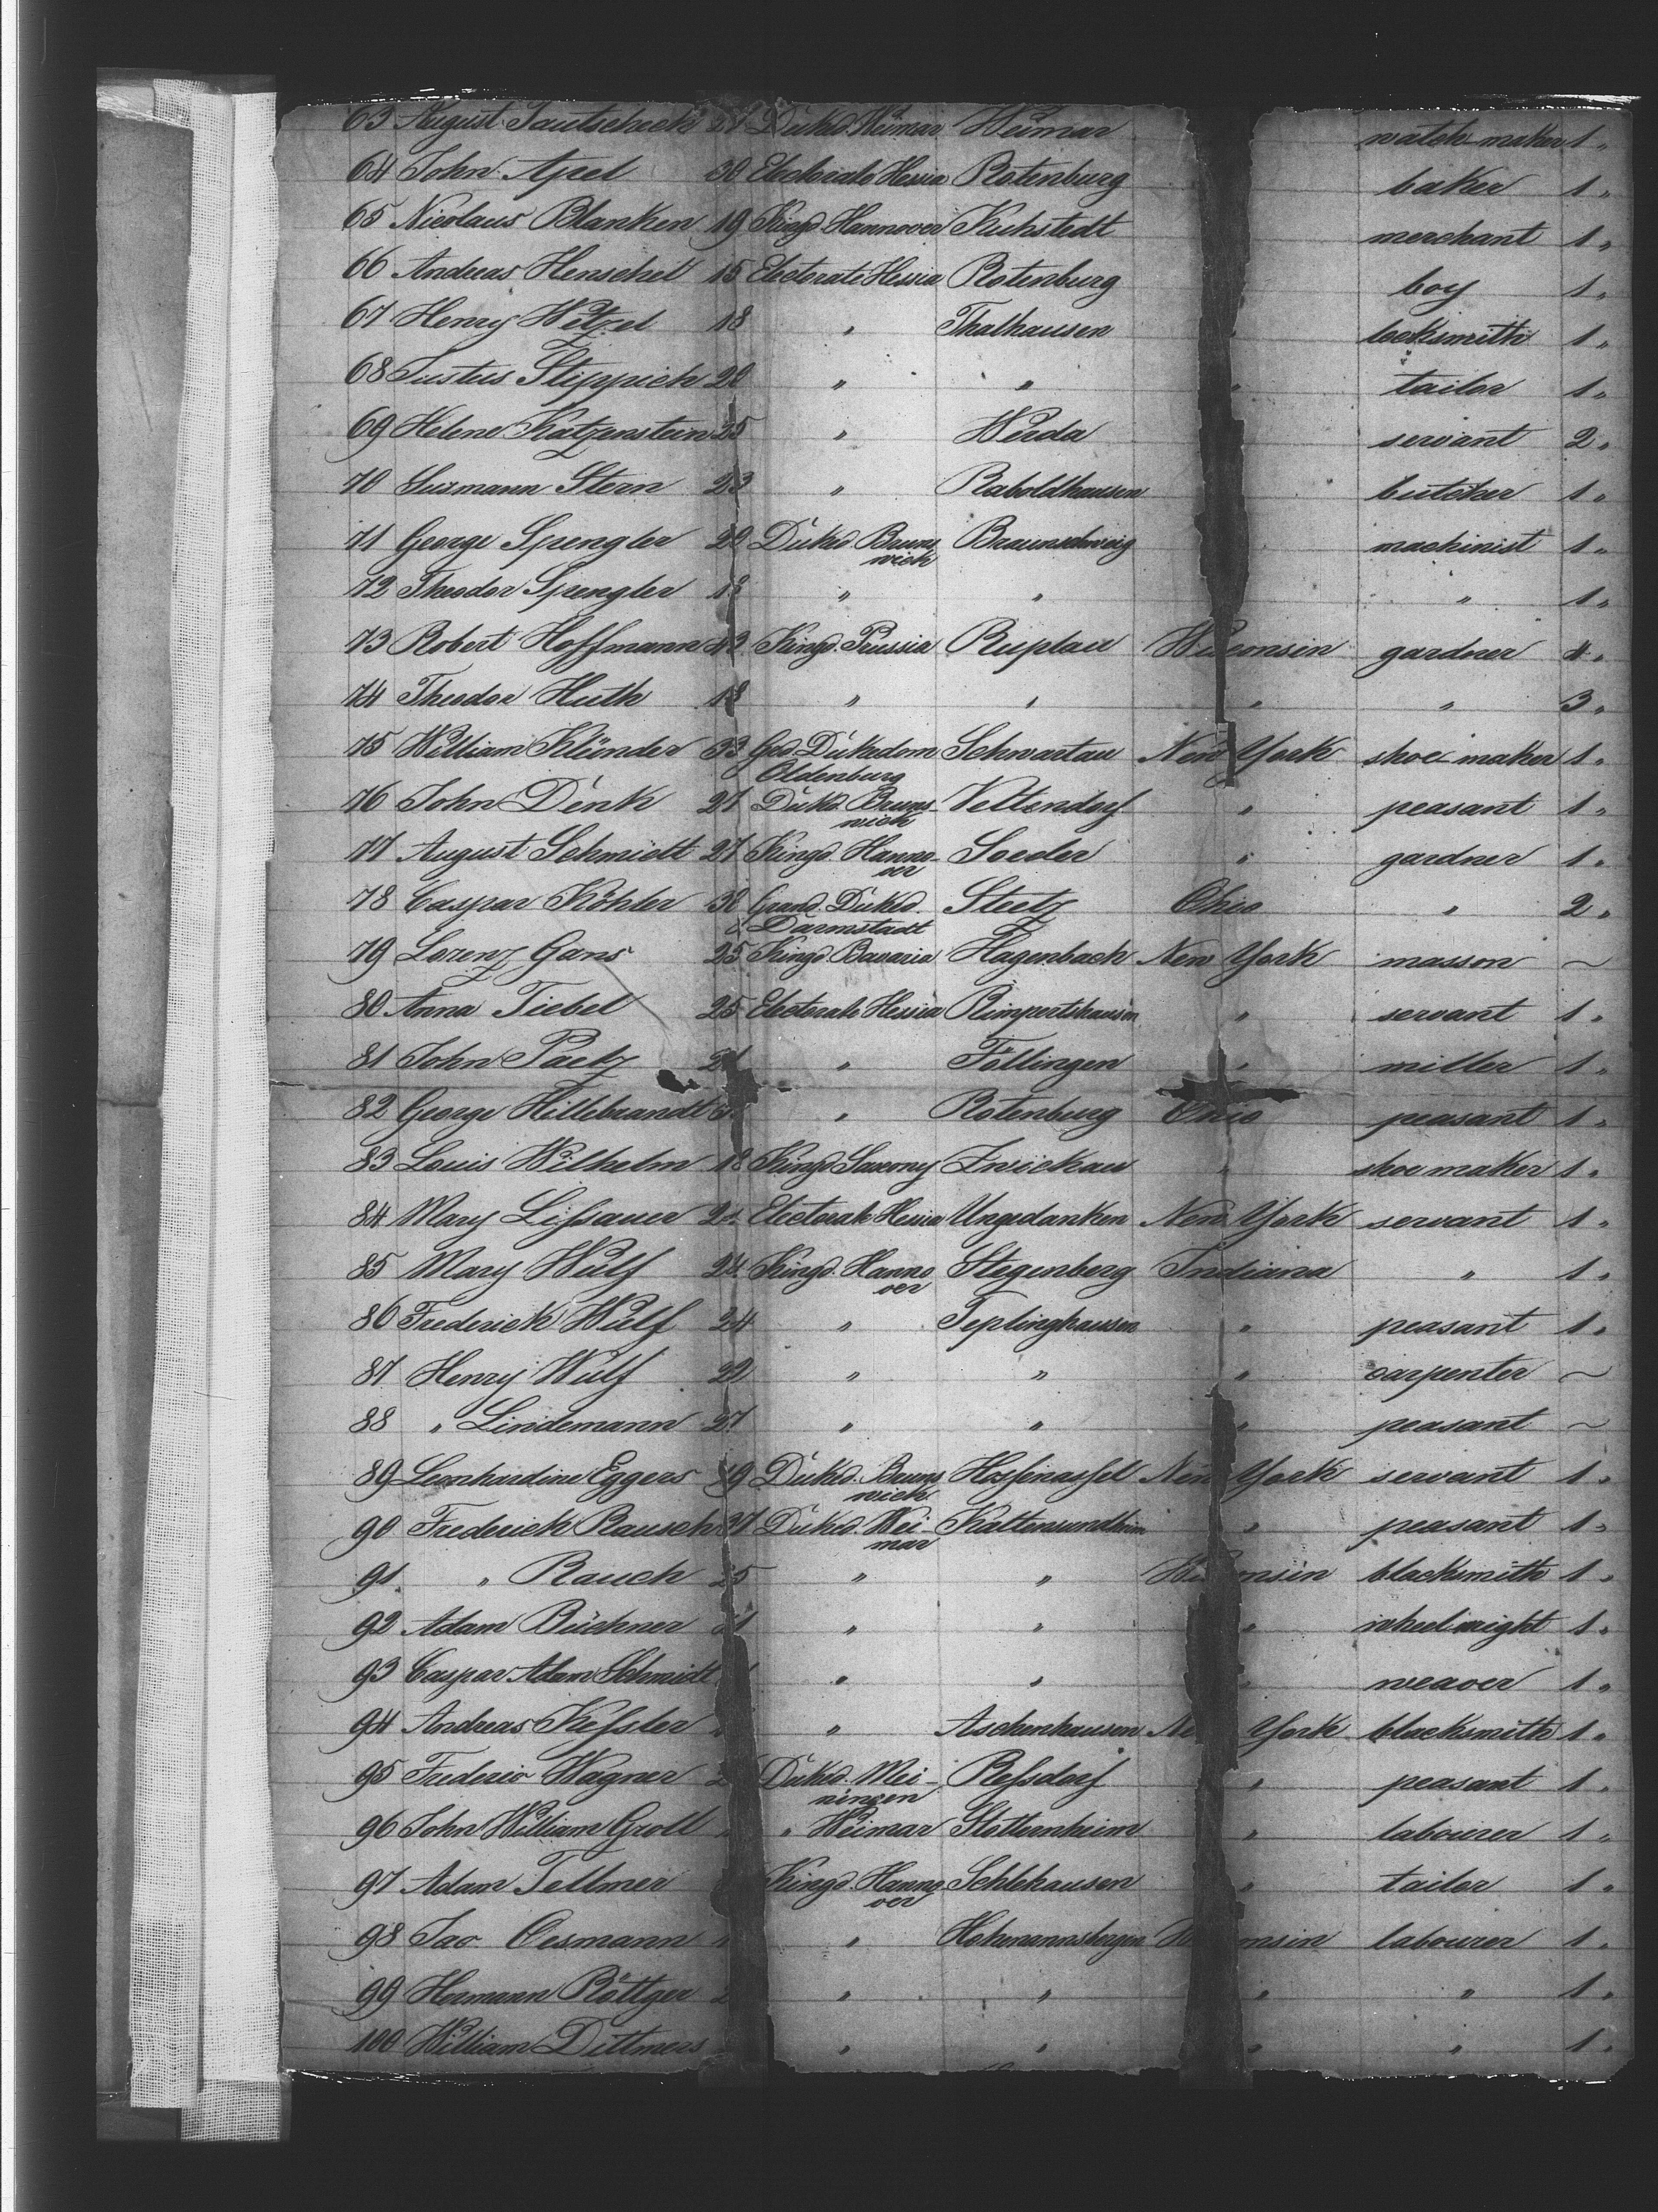 63 August Tautscheck 27 Dukd. Weimar Weimar watch-maker 1 "
64 John Apel 30 Electorate Hessia Rotenburg baker 1 "
65 Nicolaus Blanken 19 Kingd. Hannover Kuhstedt merchant 1 "
66 Andreas Henschel 15 Electorate Hessia Rotenburg boy 1 "
67 Henry Wetzel 18 " Thalhausen locksmith 1 "
68 Justus Stippich 20 " " " tailor 1 "
69 Helene Katzenstein 25 " Werda servant 2 "
70 Susmann Stern 23 " Raboldhausen butcher 1 "
71 George Spengler 22 Dukd. Bruns Braunschweig machinist 1 "
wich
72 Theodor Spengler 18 " " " 1 "
73 Robert Hoffmann 42 Kingd. Prussia Ruplau Wisconsin gardner 4 "
74 Theodor Huth 18 " " " " 3 "
75 William Klünder 33 Gd. Dukedom Schwartau New York shoe-maker 1 "
Oldenburg
76 John Denk 27 Dukd. Bruns- Veltendorf " peasant 1 "
wich
77 August Schmidt 27 Kingd. Hanno- Soeder " gardner 1 "
ver
78 Caspar Köhler 32 Grand. Dukd. Steetz Ohio " 2 "
Darmstadt
79 Lorenz Gans 25 Kingd. Bavaria Hagenbach New York masson ~
80 Anna Tiebel 25 Electorate Hessia Rimpertshausen " servant 1 "
81 John Paetz " Föllingen " miller 1 "
82 George Hillebrandt " Rotenburg Ohio peasant 1 "
83 Louis Wilhelm 18 Kingd. Saxony Zwickau " shoe maker 1 "
84 Mary Lißauer Electorate Hessia Ungedanken New York servant 1 "
85 Mary Wulf 24 Kingd. Hanno Stegenberg Indiana " 1 "
ver
86 Frederick Wulf 24 " Teplinghausen " peasant 1 "
87 Henry Wulf 22 " " " carpenter ~
88 " Lindemann 27 " " " peasant ~
89 Leonhardine Eggers 19 Dukd. Bruns New York servant 1 "
wich
90 Frederick Rausch 37 Dukd. Wei- Kaltensundheim " peasant 1 "
mar
91 " Rauch 25 " " Wisconsin blacksmith 1 "
92 Adam Büchner " " " wheelwright 1 "
93 Caspar Adam Schmidt " " " weaver 1 "
94 Andreas Keßler " Aschenhausen New York blacksmith 1 "
95 Frederic Wagner Dukd. Mei- Reßdorf " peasant 1 "
ningen
96 John William Groll " Weimar Stotternheim " labourer 1 "
97 Adam Tellmer Kingd. Hanno Schlehausen " tailor 1 "
ver
98 Jac. Oesmann " Wisconsin labourer 1 "
99 Hermann Röttger " " " " 1 "
100 William Dittmers " " " " 1 "